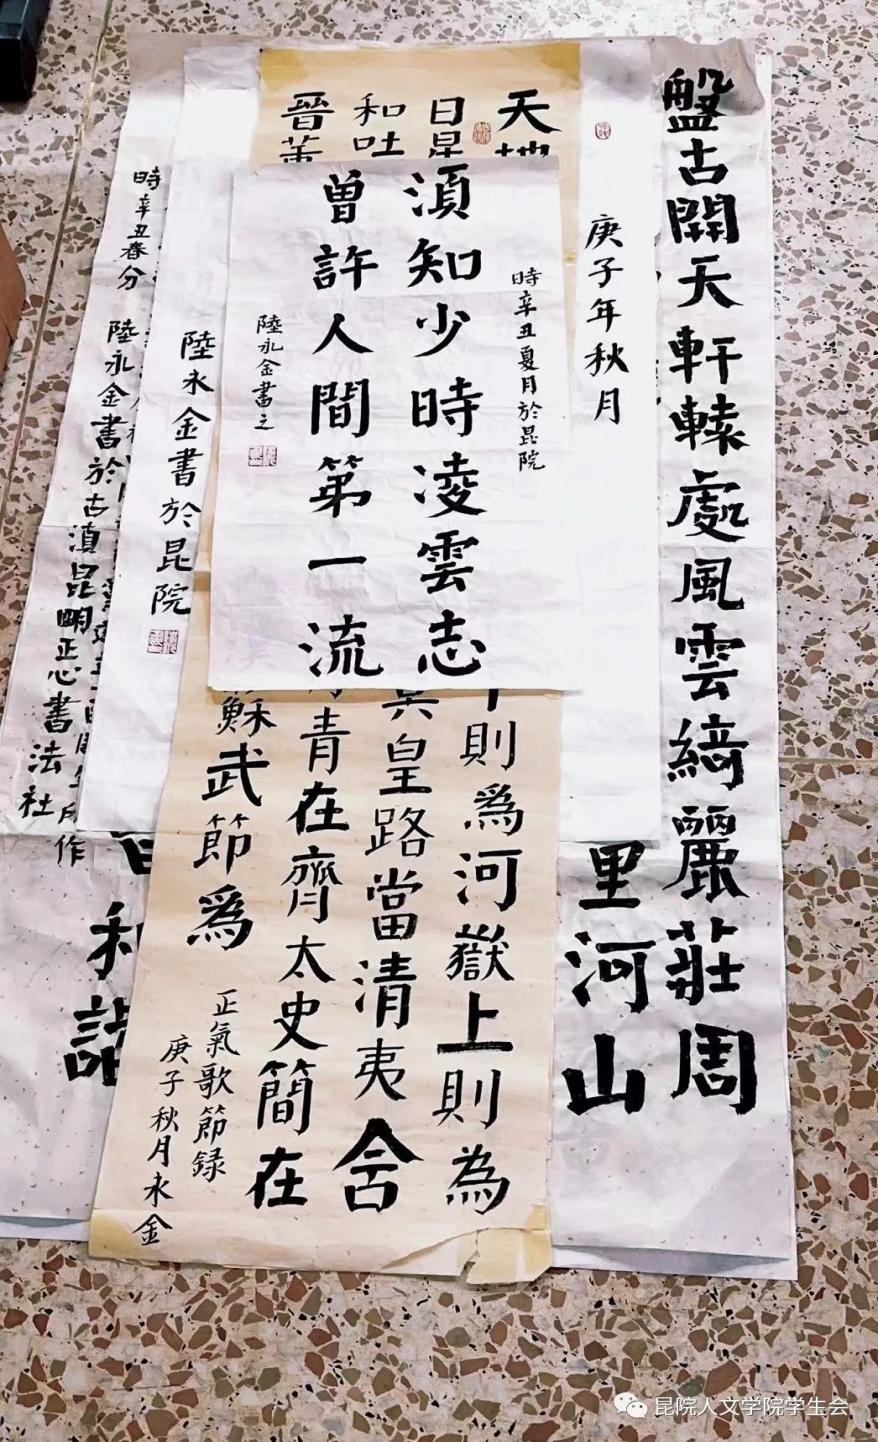 盤古開天軒轅處風雲綺麗莊周
里河山
庚子年秋月
陸永金書於昆院
時辛丑夏月於昆院
須知少時凌雲志
曾許人間第一流
陸永金書之
天地
日星
和吐
晉董
則為河嶽上則為
皇路當清夷含
青在齊太史簡在
蘇武節為
正氣歌節録
庚子秋月永金
時辛丑春分
陸永金書於古滇昆明正心書法社
作
和諧
昆院人文学院学生会